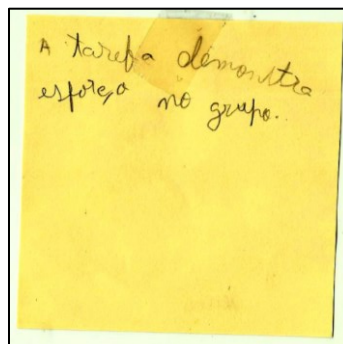 A tarefa demonstra
esforço no grupo.